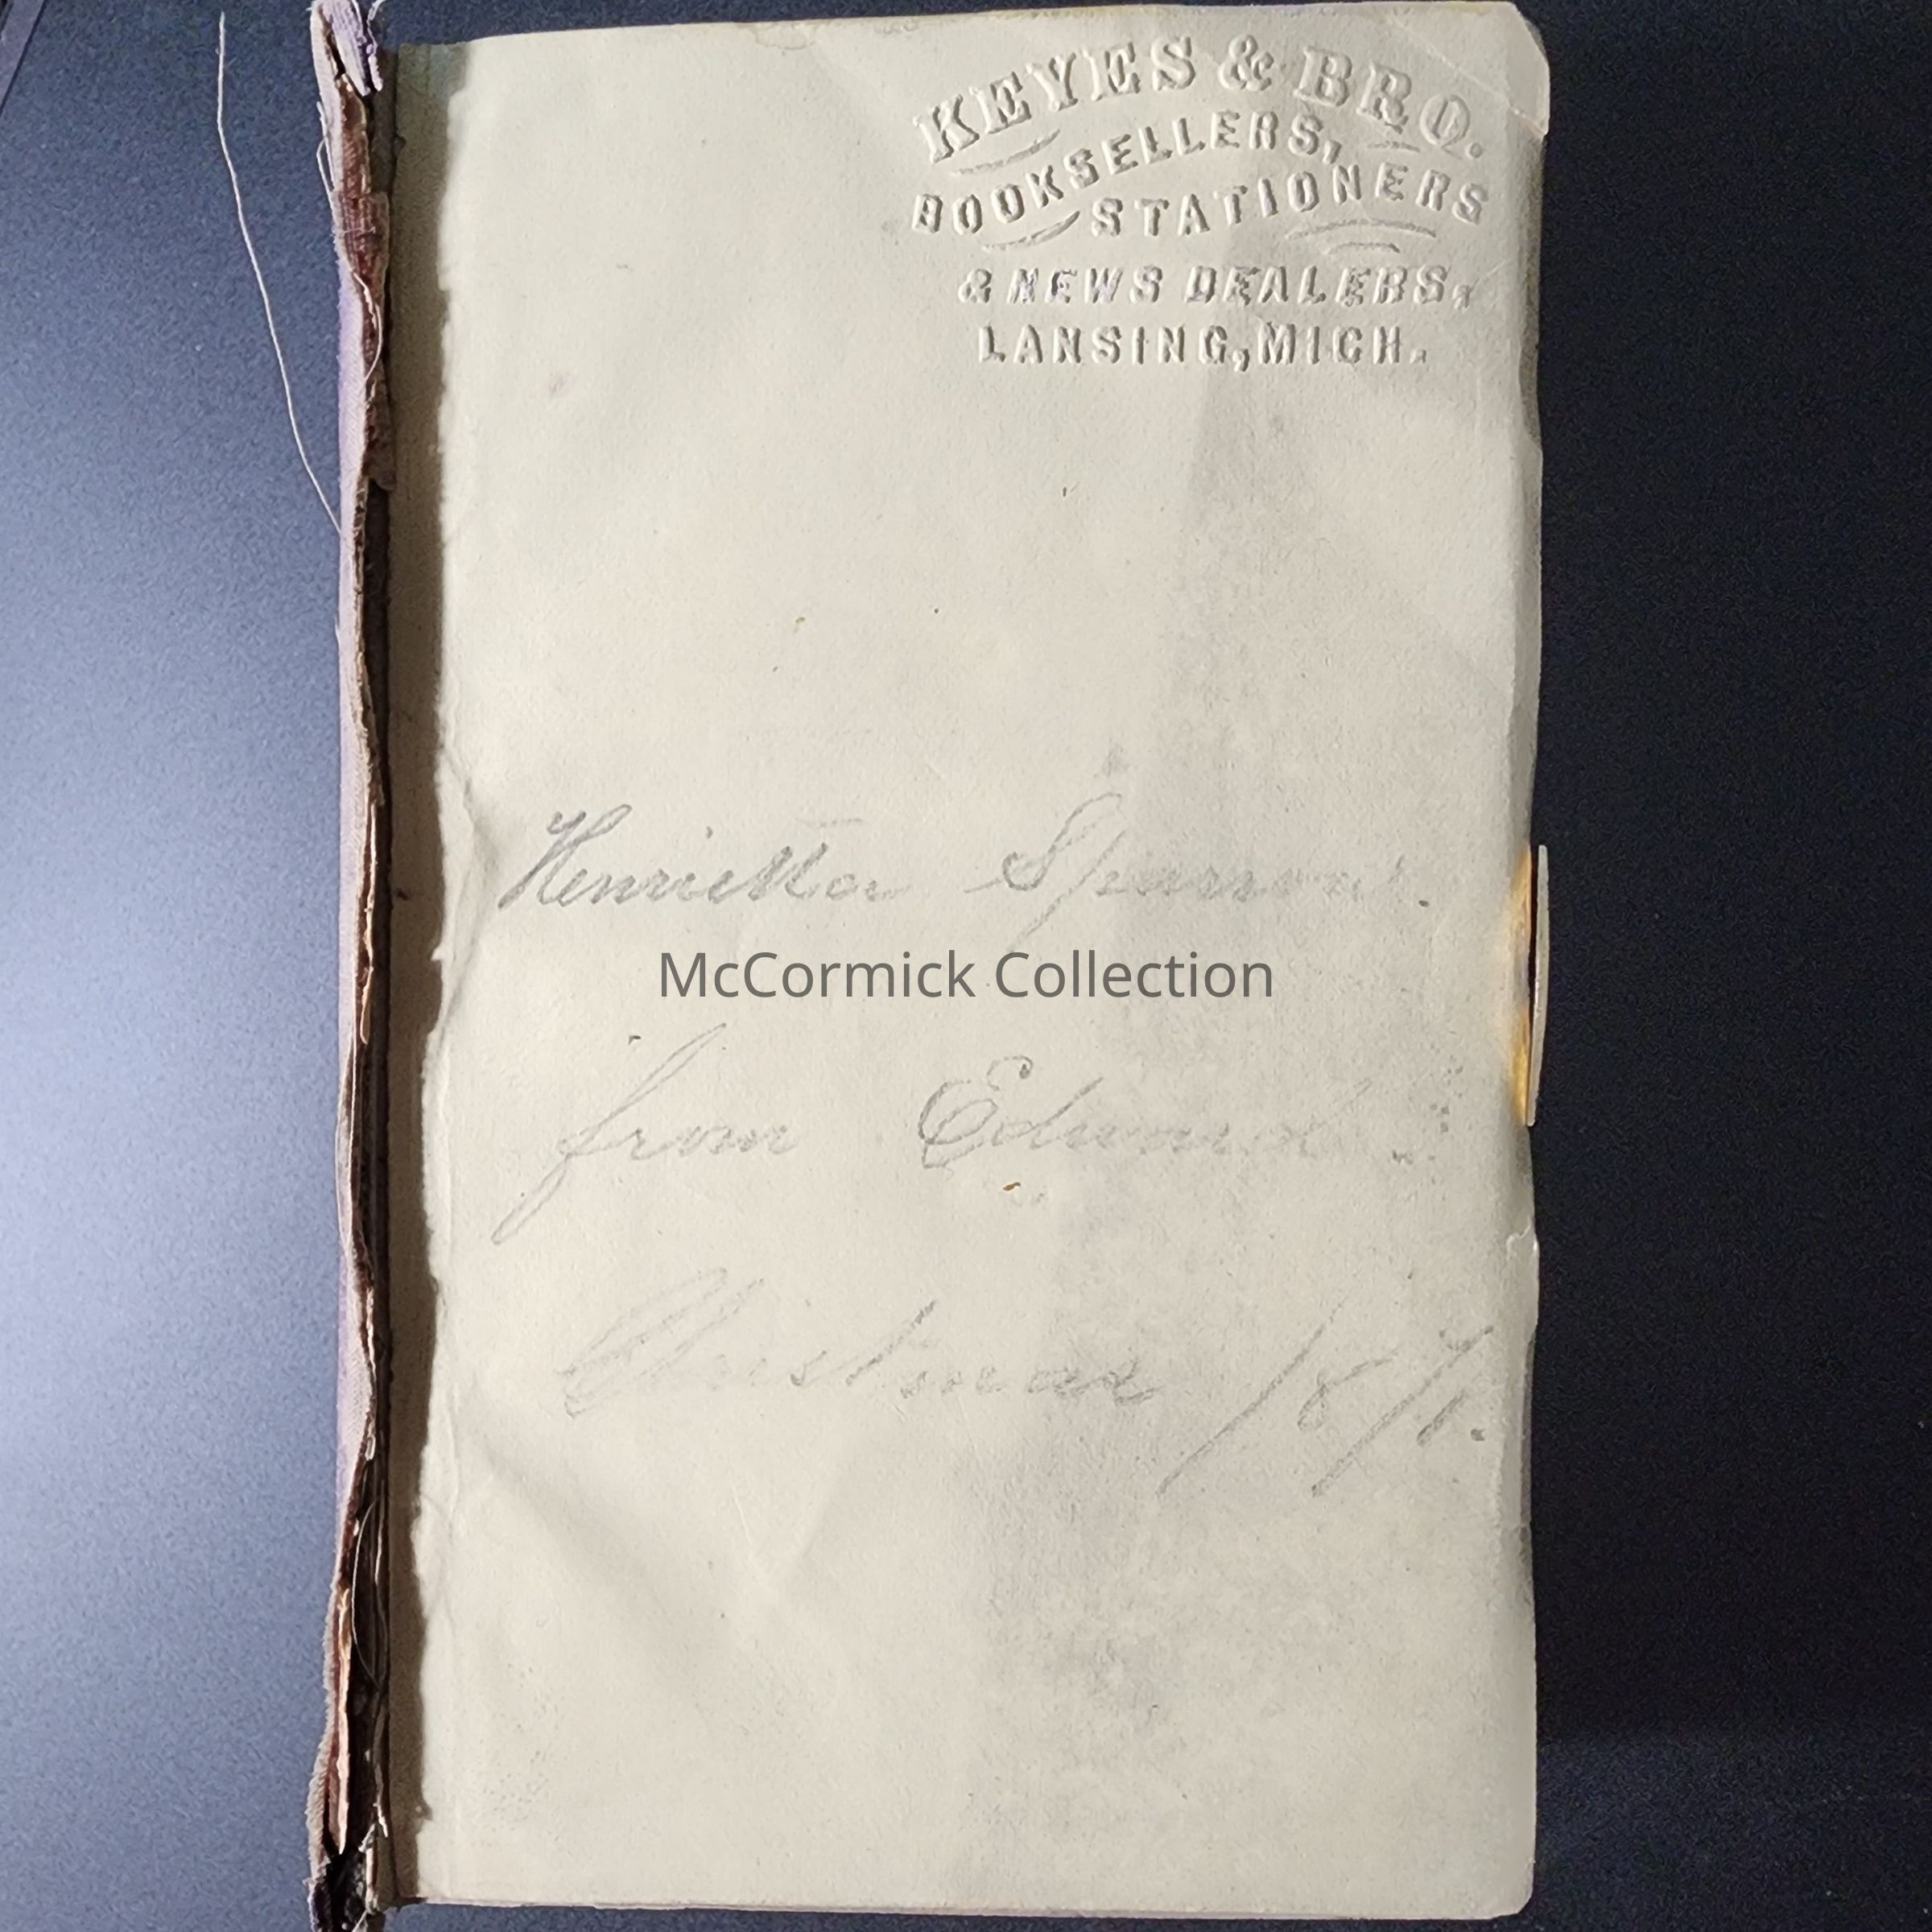 KEYES & BRO.
BOOKSELLERS,
STATIONERS
& NEWS DEALERS,
LANSING, MICH.
Henrietta Sparrow.
McCormick Collection
from Edward
Christmas